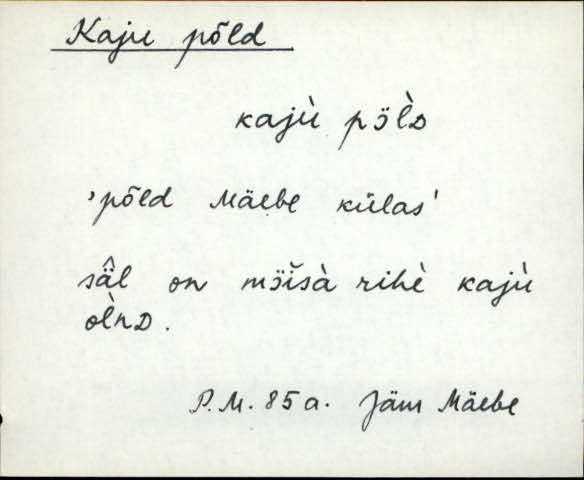 Kaju põld
kajù pöl̀ᴅ
'põld Mäebe külas'
sä̂l on möǐsà rihè kajù
ol̀nᴅ.
P.M. 85 a. Jäm Mäebe